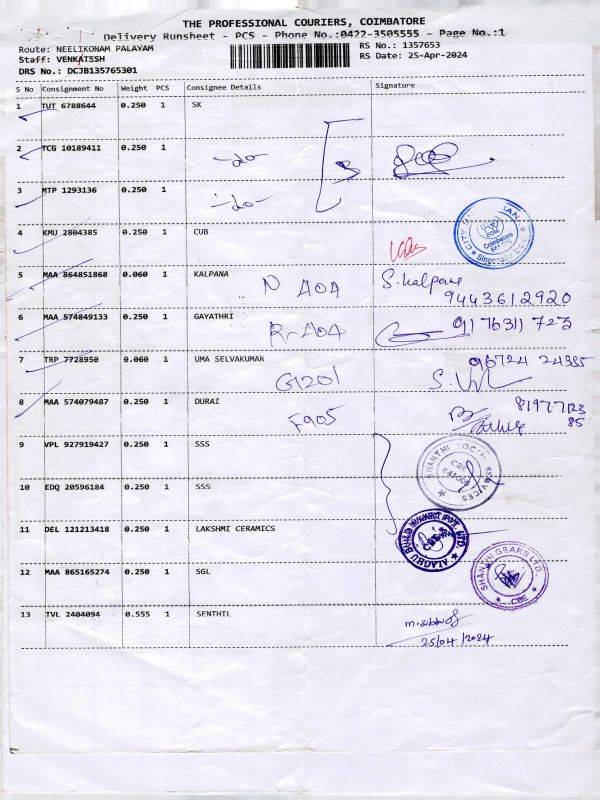 THE PROFESSIONAL COURIERS, COIMBATORE
Delivery Runsheet - PCS - Phone No.:0422-3505555 - Page No.:1
Route: NEELIKONAM PALAYAM RS No.: 1357653
Staff: VENKATESH RS Date: 25-Apr-2024
DRS No.: DCJB135765301
S No Consignment No Weight PCS Consignee Details Signature
1 TUT 6788644 0.250 1 SK
2 TCG 10189411 0.250 1 -do-
3 MTP 1293136 0.250 1 -do-
4 KMU 2804385 0.250 1 CUB
Coimbatore
5 MAA 864851868 0.060 1 KALPANA N A0A S. Kalpana
9443612920
6 MAA 574849133 0.250 1 GAYATHRI R-A04 9176311723
7 TRP 7728950 0.060 1 UMA SELVAKUMAR G1201 96724 24385
8 MAA 574079487 0.250 1 DURAI F905 81977123
85
9 VPL 927919427 0.250 1 SSS
SHANTHI SOCIAL SERVICES
CBE
641005
10 EDQ 20596184 0.250 1 SSS
11 DEL 121213418 0.250 1 LAKSHMI CERAMICS
12 MAA 865165274 0.250 1 SGL
SHANTHI GEARS LTD.,
CBE
13 TVL 2404094 0.555 1 SENTHIL
25/04/2024